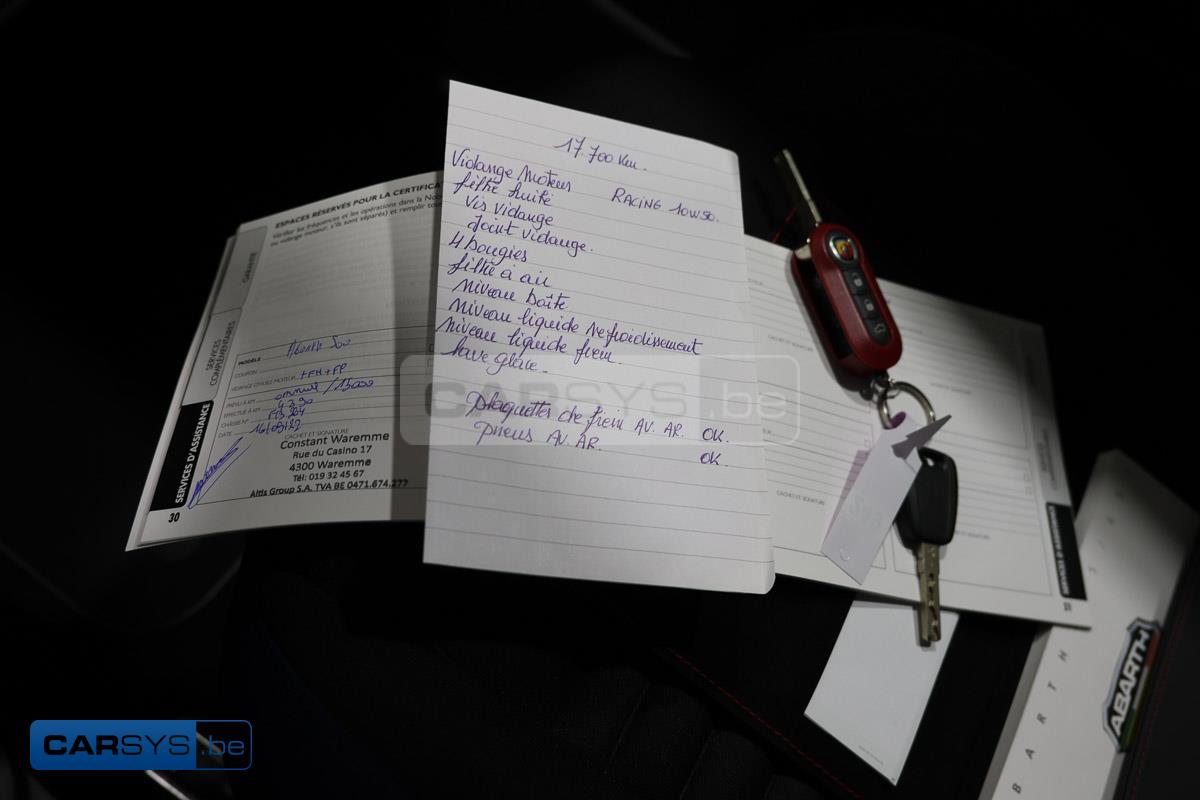 17.700 Km.
Vidange Moteur
filtre huile RACING 10W50.
Vis vidange
Joint vidange.
4 bougies
filtre à air
Niveau boîte
Niveau liquide Refroidissement
Niveau liquide frein
lave glace
Plaquettes de frein AV. AR. OK.
Pneus AV. AR. OK.
ESPACES RÉSERVÉS POUR LA CERTIFICA
Vérifier les fréquences et les opérations dans la
ou vidange moteur, s'ils sont séparés) et remplir
GARANTIE
SERVICES
COMPLÉMENTAIRES
SERVICES D'ASSISTANCE
MODÈLE Abarth 500
COUPON
VIDANGE D'HUILE MOTEUR +FH+FP
PRÉVU À KM annuel / 15000
EFFECTUÉ À KM
CHÂSSIS N°
DATE
CACHET ET SIGNATURE
Constant Waremme
Rue du Casino 17
4300 Waremme
Tél: 019 32 45 67
Altis Group S.A. TVA BE 0471.674.277
30
CACHET ET SIGNATURE
CACHET ET SIGNATURE
SERVICES D'ASSISTANCE
31
CARSYS.be
ABARTH
BARTH
CARSYS.be